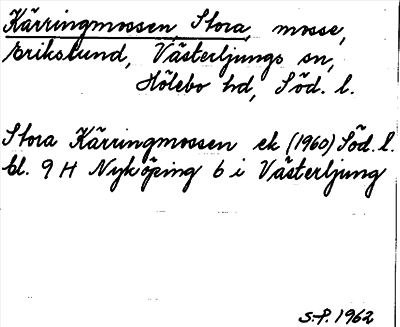 Kärringmossen, Stora, mosse,
Erikslund, Västerljungs sn,
Hölebo hd, Söd. l.
Stora Kärringmossen ek (1960) Söd. l.
bl. 9 H Nyköping 6 i Västerljung
S.P. 1962